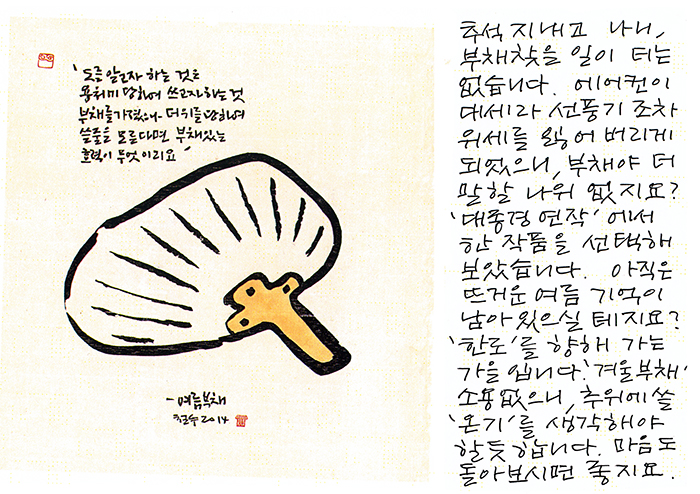 '도를 알고자 하는 것은
용처에 당하여 쓰고자 하는 것
부채를 가졌으나 더위를 당하여
쓸줄을 모른다면 부채 있는
효력이 무엇이리요'
-여름부채
철수 2014
추석 지내고 나니,
부채찾을 일이 더는
없습니다. 에어컨이
대세라 선풍기 조차
위세를 잃어 버리게
되었으니, 부채야 더
말할 나위 없지요?
'대종경 연작'에서
한 작품을 선택해
보았습니다. 아직은
뜨거운 여름 기억이
남아 있으실 테지요?
'한로'를 향해 가는
가을입니다. '겨울부채'
소용없으니, 추위에 쓸
'온기'를 생각해야
할듯 합니다. 마음도
돌아보시면 좋지요.